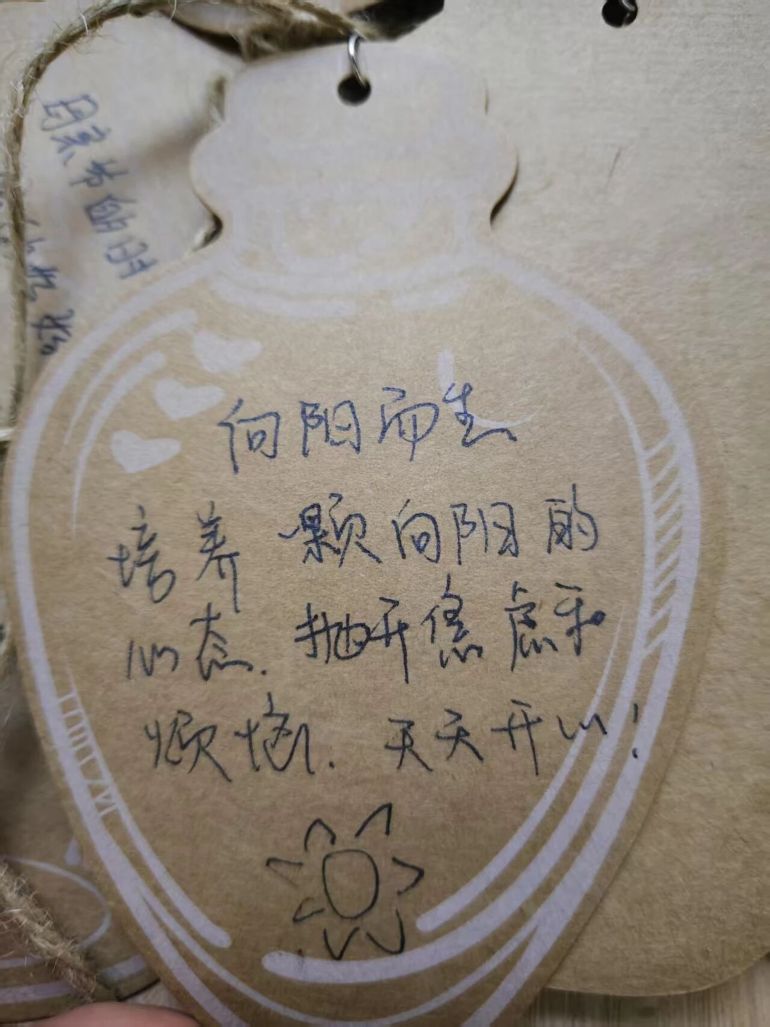 向阳而生
培养一颗向阳的
心态.抛开焦虑和
烦恼.天天开心!